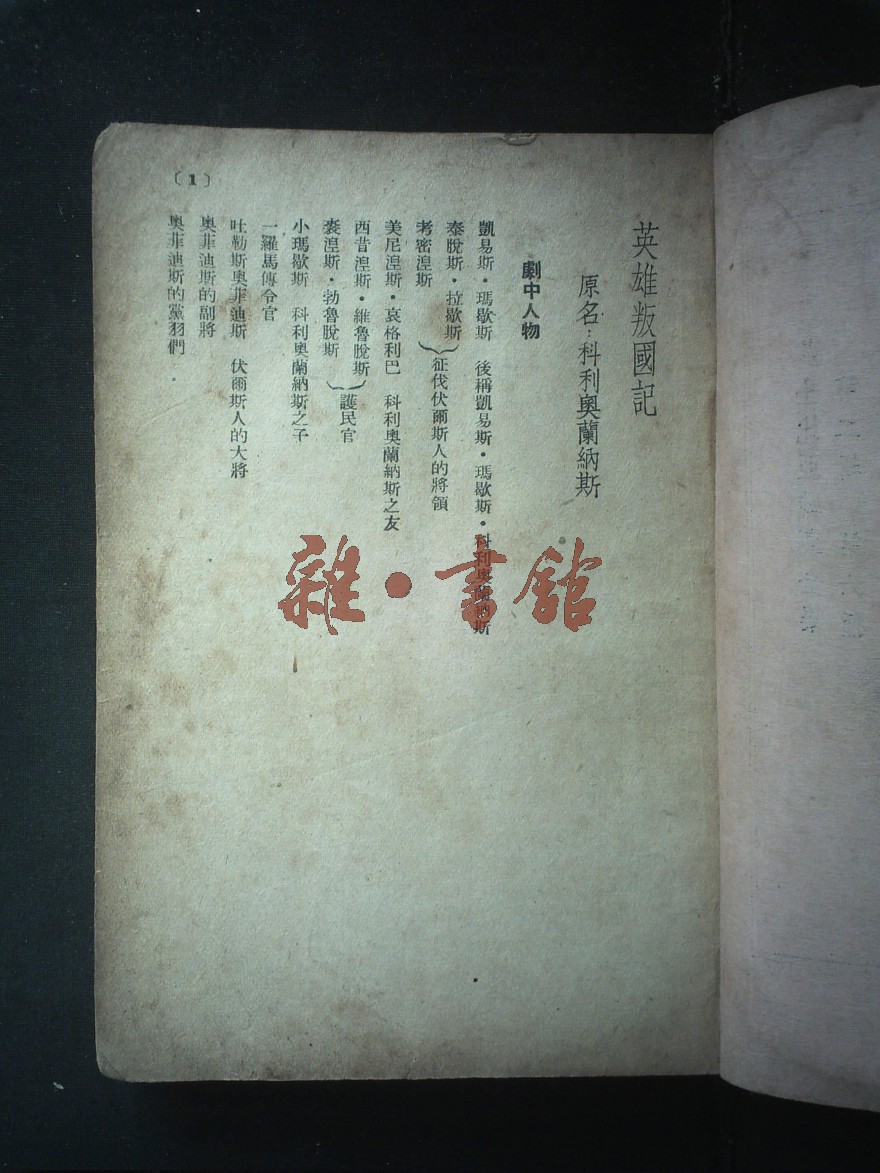 英雄叛國記
原名：科利奧蘭納斯
劇中人物
凱易斯·瑪歇斯　後稱凱易斯·瑪歇斯·科利奧蘭納斯
泰脫斯·拉歇斯
考密湼斯
征伐伏爾斯人的將領
美尼湼斯·哀格利巴　科利奧蘭納斯之友
西昔湼斯·維魯脫斯
裘湼斯·勃魯脫斯
護民官
小瑪歇斯　科利奧蘭納斯之子
一羅馬傳令官
吐勒斯奧菲迪斯　伏爾斯人的大將
奧菲迪斯的副將
奧菲迪斯的黨羽們
〔1〕
雜·書館